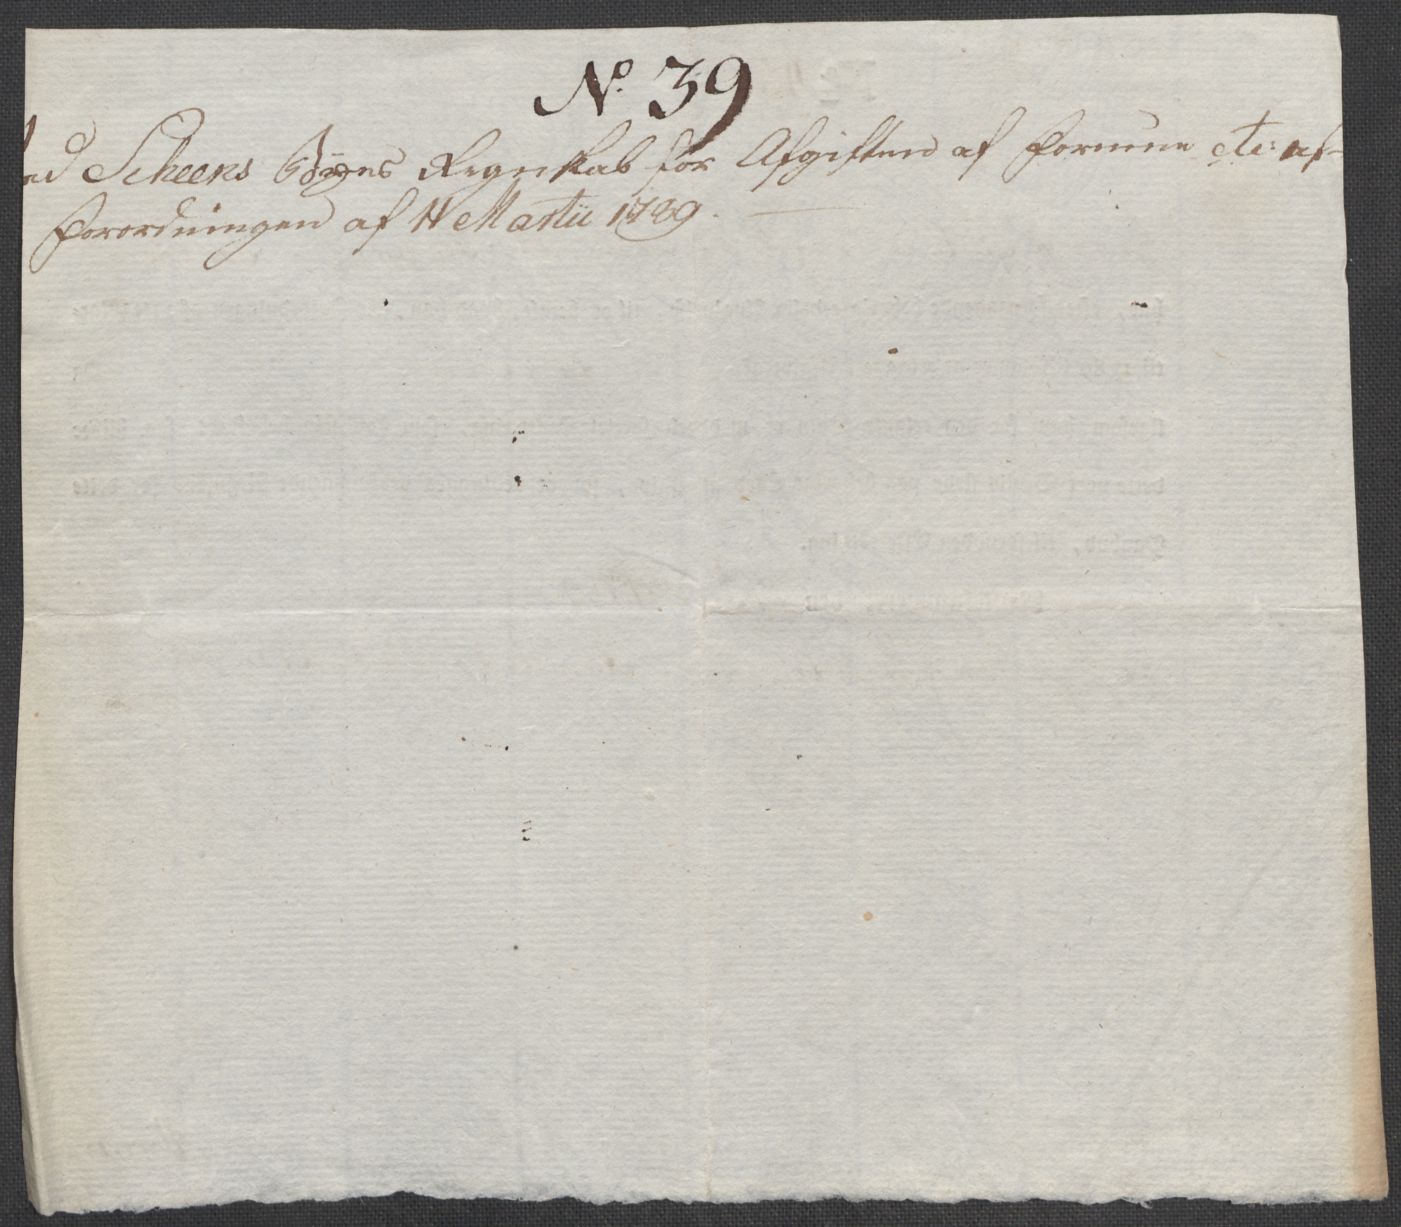 No. 39
ad Scheens Byens Regnskab for Afgiften af Formue etc: af
Forordningen af 11 Martii 1789.